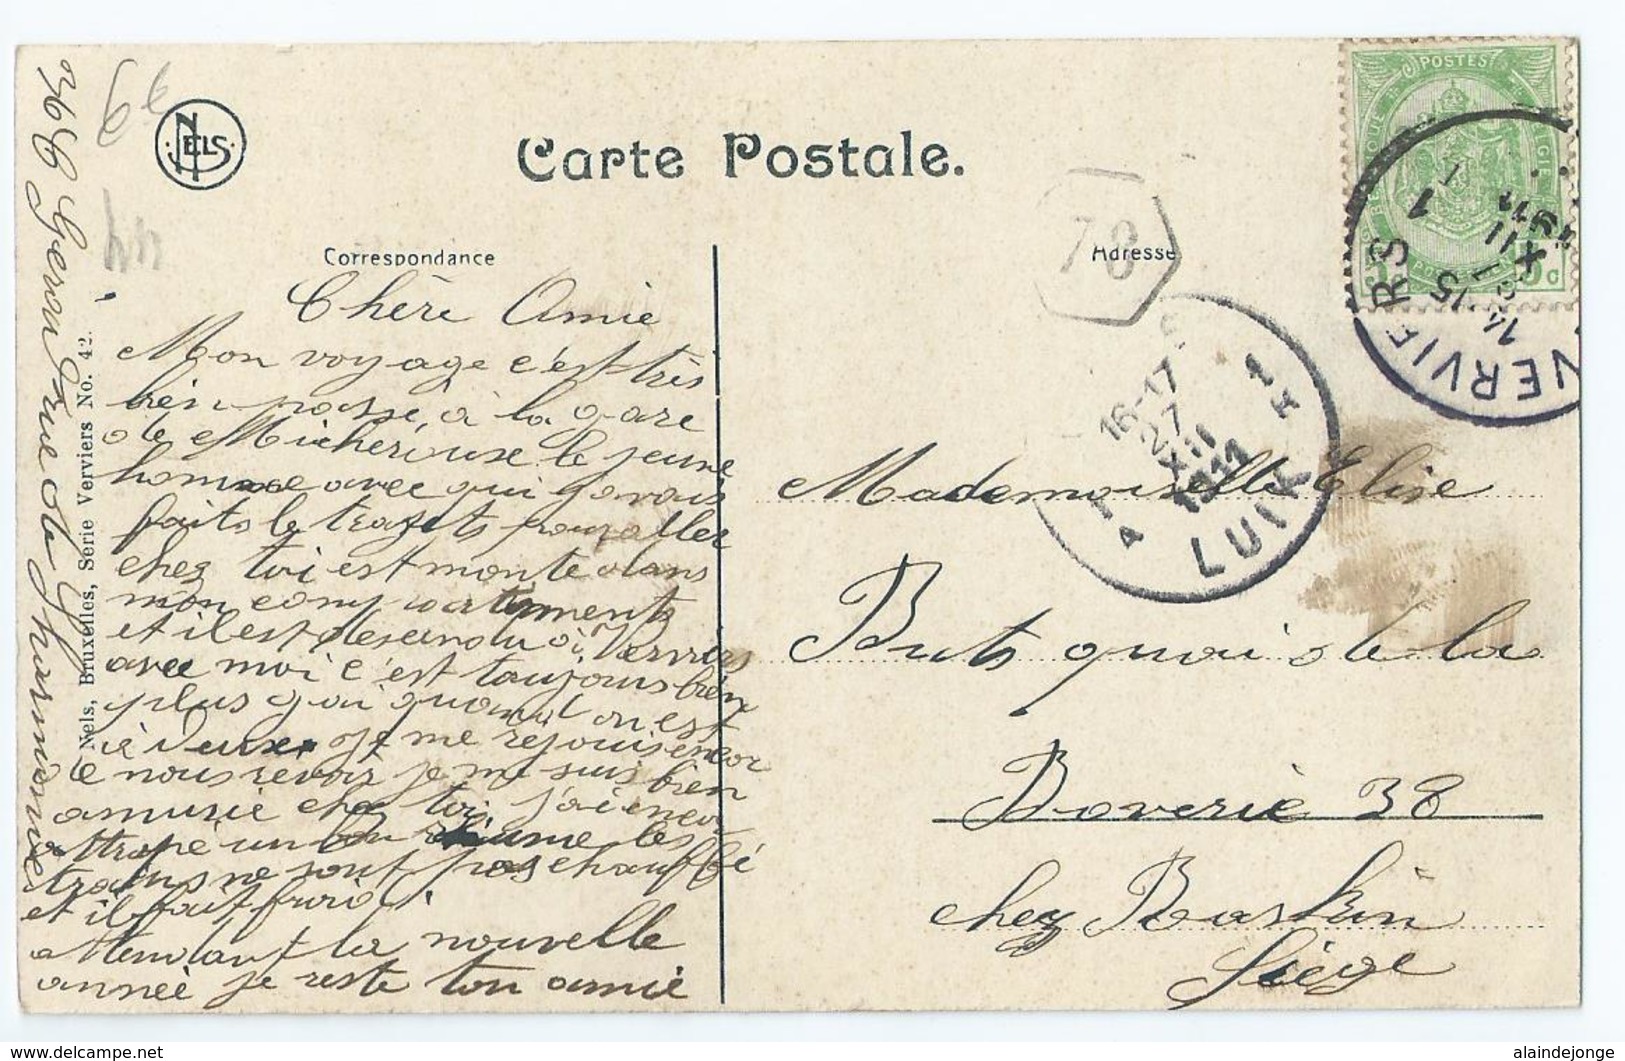 NELS
Carte Postale.
Correspondance
Adresse
Chère Amie
Mon voyage c'est très
bien passé, à la gare
de Micheroux le jeune
homme avec qui j'avais
faits le trajets pour aller
chez toi est monté dans
mon compartiments
et il est descendu à Verviers
avec moi c'est toujours bien
plus gai quand on est
à deux. je me rejouis encor
de nous revoir je me suis bien
amusie chez toi, j'ai encor
attrapé un rhume les
trains ne sont pas chauffé
et il fait froid.
attendant la nouvelle
année je reste ton amie
36 rue de l'harmonie
Nels, Bruxelles, Serie Verviers No. 42.
6 €
78
POSTES
VERVIERS 1
14-15
XII
1911
16-17
27
XII
1911
LUIK
Mademoiselle Elise
Buts quai de la
Boverie 38
chez Baskin
Liège
alaindejonge